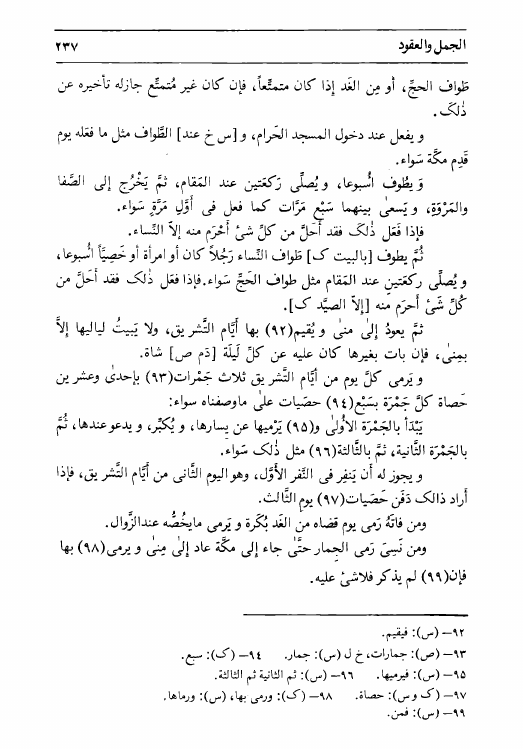 الجمل والعقود ٢٣٧
طَواف الحجّ، أو مِن الغَد إذا كان متمتّعاً، فإن كان غير مُتمتّع جازله تأخيره عن
ذٰلك.
و يفعل عند دخول المسجد الحَرام، و [س خ عند] الطَّواف مثل ما فعَله يوم
قَدِم مكّة سَواء.
وَ يَطُوف اُسبوعا، و يُصلّي رَكعَتين عند المَقام، ثمّ يَخْرُج إلى الصَّفا
والمَرْوَةِ، و يَسعىٰ بينهما سَبْع مَرَّات كما فعل في أوَّلِ مَرَّةٍ سَواء.
فإذا فَعَل ذٰلك فقد أحَلَّ من كلّ شئ أحْرَم منه إلاّ النِّساء.
ثُمَّ يطوف [بالبيت ك] طَواف النِّساء رَجُلاً كان أو امرأة أو خَصِيّاً اُسبوعا،
و يُصلّي ركعتين عند المَقام مثل طواف الحَجّ سَواء. فإذا فعَل ذٰلك فقد أحَلَّ من
كُلّ شَئ أحرَم منه [إلاّ الصيَّد ك].
ثمّ يعودُ إلىٰ منىٰ و يُقيم(٩٢) بها أيَّام التَّشريق، ولا يَبيتُ لياليها إلاّ
بمِنىٰ، فإن بات بغيرها كان عليه عن كلّ لَيلَة [دَم ص] شاة.
و يَرمى كلَّ يوم من أيَّام التَّشريق ثلاث جَمْرات(٩٣) بإحدىٰ وعشرين
حَصاة كلَّ جَمْرَة بسَبْع(٩٤) حصَيات علىٰ ماوصفناه سواء:
يَبْدَأ بالجَمْرَة الأُولىٰ و(٩٥) يَرْميها عن يسارها، و يُكبّر، و يدعوعندها، ثُمَّ
بالجَمْرَة الثَّانية، ثمَّ بالثَّالثة(٩٦) مثل ذٰلك سَواء.
و يجوز له أن يَنفِر في النَّفر الأوَّل، وهواليوم الثّانى من أيَّام التَّشريق، فإذا
أراد ذالك دَفَن حَصَيات(٩٧) يوم الثَّالث.
ومن فاتَهُ رَمى يوم قضاه من الغَد بُكرَة و يَرمى مايخُصُّه عندالزَّوال.
ومن نَسِىَ رَمى الجِمار حتَّىٰ جاء إلى مكّة عاد إلىٰ مِنىٰ و يرمى(٩٨) بها
فإن(٩٩) لم يذكر فلاشئ عليه.
٩٢— (س): فيقيم.
٩٣— (ص): جمارات، خ ل (س): جمار. ٩٤— (ك): سبع.
٩٥— (س): فيرميها. ٩٦— (س): ثم الثانية ثم الثالثة.
٩٧— (ك و س): حصاة. ٩٨— (ك): ورمى بها، (س): ورماها.
٩٩— (س): فمن.